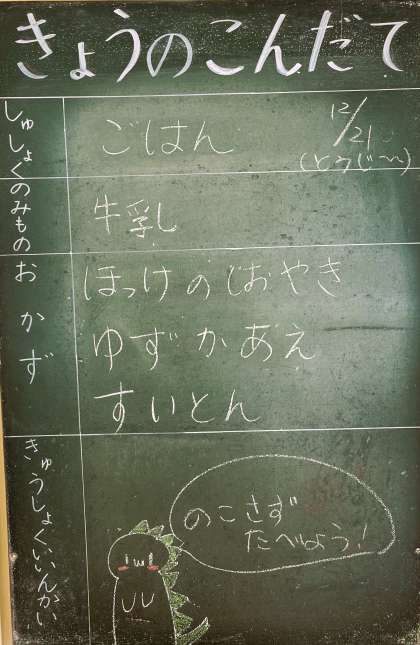 きょうのこんだて
12/21
(とうじ〜〜)
しゅしょく
ごはん
のみもの
牛乳
おかず
ほっけのしおやき
ゆずかあえ
すいとん
きゅうしょくいいんかい
のこさず
たべよう!